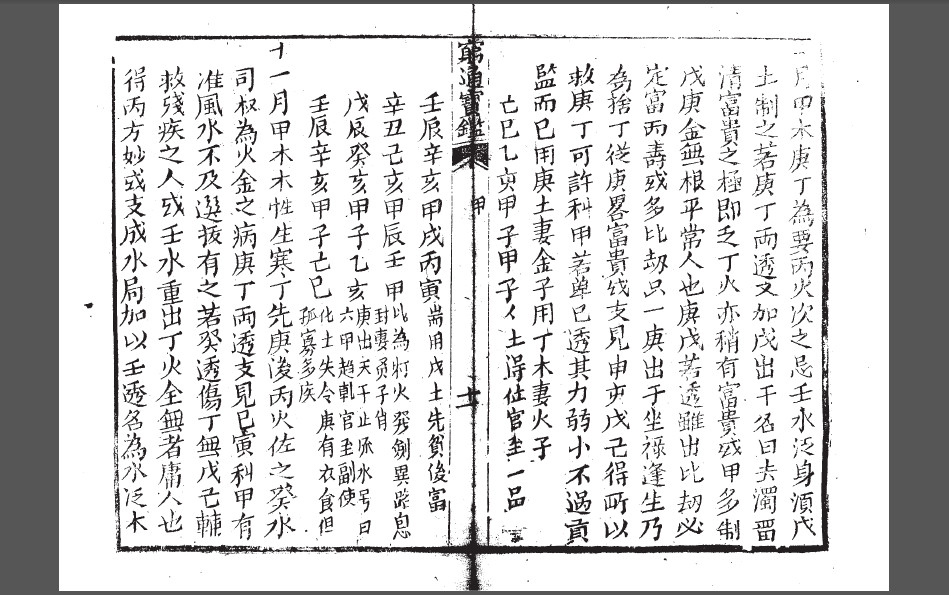 月甲木庚丁為要丙火次之忌壬水泛身須戊
土制之若庚丁兩透支加戊出干名曰去濁留
清富貴之極即乏丁火亦稍有富貴或甲多制
戊庚金無根平常人也庚戊若透雖出比刧必
定富而壽或多比刧只一庚出于坐祿逢生乃
為捨丁從庚畧富貴或支見申亥戊己得所以
救庚丁可許科甲若單己透其力弱小不過貢
監而已用庚土妻金子用丁木妻火子
亡巳乙亥甲子甲子 土得位官至一品
窮通寶鑑
甲
十一
壬辰辛亥甲戌丙寅 耑用戊土先貧後富
辛丑己亥甲辰壬甲 此為灯火 劍異 息
封妻 子 肖
戊辰癸亥甲子乙亥 庚出天干止 水号曰
六甲趨乹官至副使
壬辰辛亥甲子亡巳 化土失令庚有衣食但
孤寡多疾
十一月甲木木性生寒丁先庚後丙火佐之癸水
司权為火金之病庚丁兩透支見巳寅科甲有
准風水不及選拔有之若癸透傷丁無戊己輔
救殘疾之人或壬水重出丁火全無者庸人也
得丙方妙或支成水局加以壬透名為水泛木